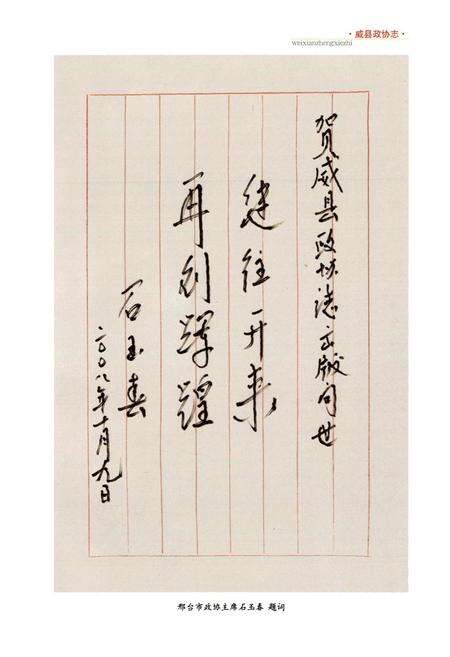 ·威县政协志·
weixianzhengxiezhi
贺威县政协誌出版问世
继往开来
再创辉煌
石玉春
二〇〇八年十月九日
邢台市政协主席石玉春 题词